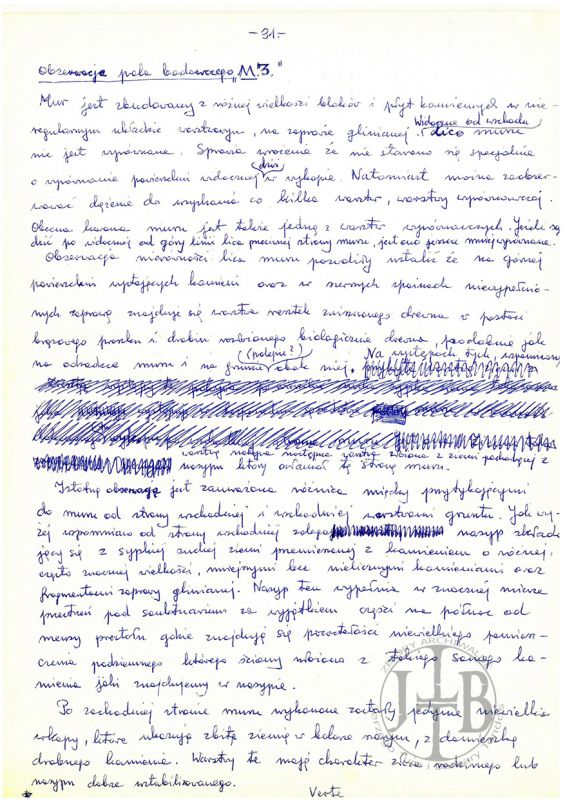 -31-
Obserwacja pola badawczego "M3."
Mur jest zbudowany z różnej wielkości bloków i płyt kamiennych w nie-
regularnym układzie warstwowym, na zaprawie glinianej. Widoczne od wschodu lico muru
nie jest wyrównane. Sprawia wrażenie że nie starano się specjalnie
o wyrównanie powierzchni widocznej dziś w wykopie. Natomiast można zaobser-
wować dążenie do uzyskania co kilka warstw, warstwy wyrównawczej.
Obecna korona muru jest także jedną z warstw wyrównawczych. Jeżeli są-
dzić po widocznej od góry linii lica przeciwnej strony muru, jest ono jeszcze mniej wyrównane.
Obserwacja nierówności lica muru pozwoliły ustalić że na górnej
powierzchni wystających kamieni oraz w szerszych spoinach niewypełnio-
nych zaprawą znajduje się warstwa resztek zniszczonego drewna w postaci
brązowego proszku i drobin rozbionego biologicznie drewna, podobnie jak
na odsadzce muru i na gruncie (polepie?) obok niej. Na występach tych, wspomnianą
warstwę nakrywa następna warstwa złożona z ziemi pochodzącej z
nasypu który osłaniał tę stronę muru.
Istotną obserwacją jest zauważona różnica między przytykającymi
do muru od strony wschodniej i wschodniej warstwami gruntu. Jak wy-
żej wspomniano od strony wschodniej zalega nasyp składa-
jący się z sypkiej suchej ziemi przemieszanej z kamieniem o różnej,
często znacznej wielkości, mniejszymi lecz nielicznymi kamieniami oraz
fragmentami zaprawy glinianej. Nasyp ten wypełnia w znacznej mierze
przestrzeń pod sanktuarium za wyjątkiem części na północ od
mensy prestołu gdzie znajdują się pozostałości niewielkiego pomiesz-
czenia podziemnego którego ściany ułożono z takiego samego ka-
mienia jaki znajdujemy w nasypie.
Po zachodniej stronie muru wykonane zostały jedynie niewielkie
wkopy, które ukazują zbitą ziemię w kolorze szarym, z domieszką
drobnego kamienia. Warstwy te mają charakter złoża rodzimego lub
nasypu dobrze ustabilizowanego.
Verte
ZBIORY ARCHIWALNE
JLB